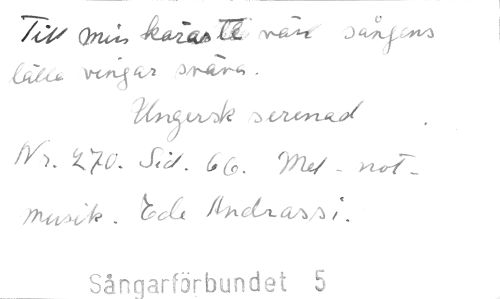 Till min käraste vän sångens
lätta vingar sväva.
Ungersk serenad
Nr. 270. Sid. 66. Med - not -
musik. Ede Andrassi.
Sångarförbundet 5